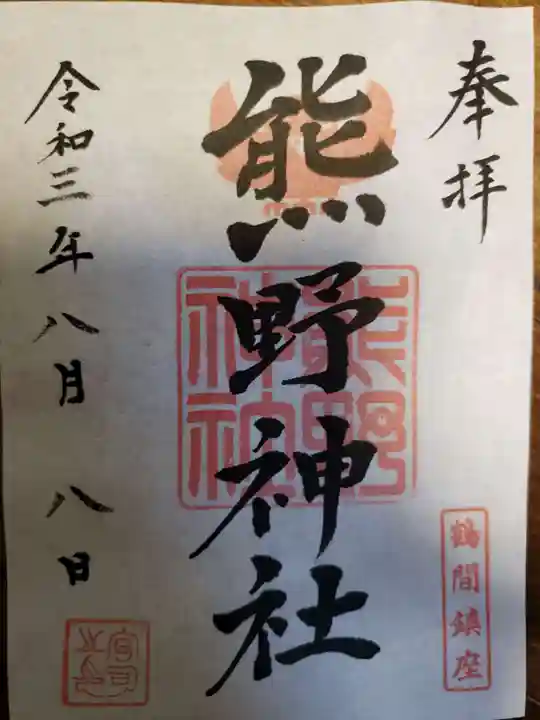 奉拝
鶴間鎮座
熊野神社
熊野
神社
令和三年八月八日
宮司之印